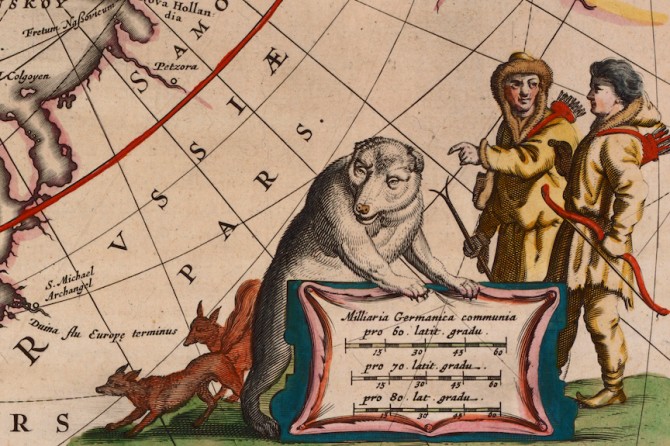 Fretum Nassovicum
Nova Hollan-
dia
Colgoyen
Petzora
SAMO
RVSSIÆ
PARS.
S. Michael
Archangel
Duina flu. Europę terminus
RS
Milliaria Germanica communia
pro 60. latit. gradu.
15 30 45 60
pro 70. latit. gradu.
15 30 45 60
pro 80. lat. gradu.
15 30 45 60